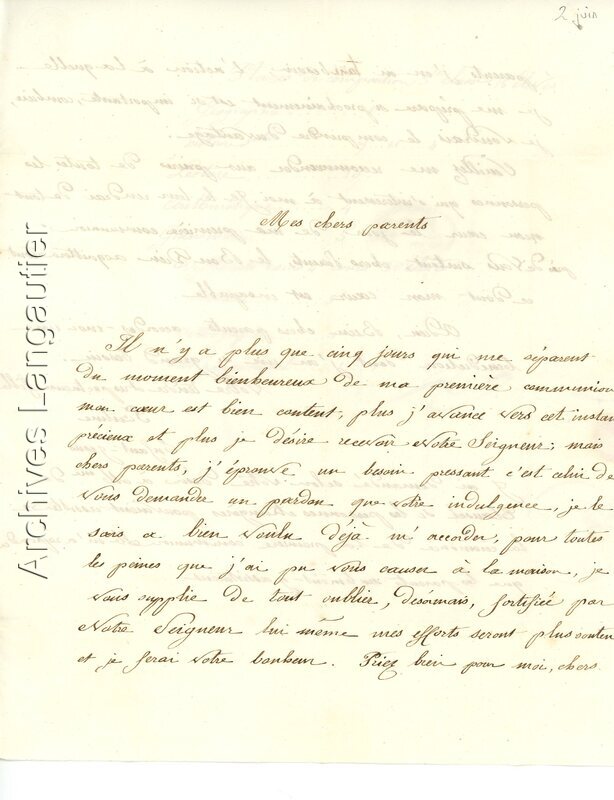 2 juin
Mes chers parents
Il n'y a plus que cinq jours qui me séparent
du moment bienheureux de ma première communion
mon cœur est bien content, plus j'avance vers cet instan
précieux et plus je désire recevoir Notre Seigneur; mais
chers parents, j'éprouve un besoin pressant c'est celui de
vous demander un pardon que votre indulgence, je le
sais a bien voulu déjà m'accorder, pour toutes
les peines que j'ai pu vous causer à la maison, je
vous supplie de tout oublier, désormais, fortifiée par
Notre Seigneur lui même mes efforts seront plus souten
et je ferai votre bonheur. Priez bien pour moi, chers
Archives Langautier